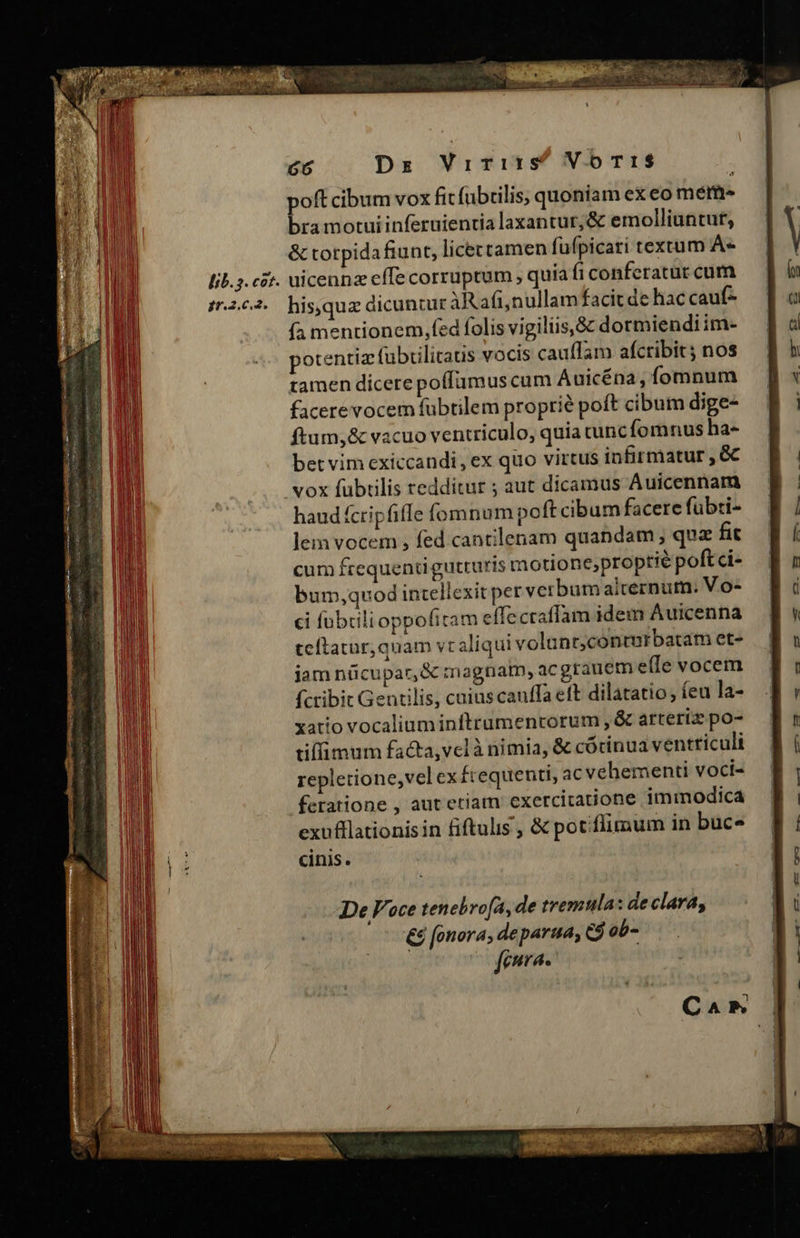 66 De Vitiis Vocis
post cibum vox fit subtilis, quoniam ex eo mem-
bra motui inseruientia laxantur, & emolliuntur,
& torpida fiunt, licet tamen suspicari textum A-
lib.3. cõt. uicennæ esse corruptum, quia si conferatur cum
tr.2.c.2. his, quæ dicuntur à Rasi, nullam facit de hac cauſ-
ſa mentionem, ſed ſolis vigiliis, & dormiendi im-
potentiæ ſubtilitatis vocis cauſſam aſcribit; nos
tamen dicere poſſumus cum Auicéna, ſomnum
facere vocem ſubtilem propriè poſt cibum dige-
ſtum, & vacuo ventriculo, quia tunc ſomnus ha-
bet vim exiccandi, ex quo virtus infirmatur, &
vox ſubtilis redditur; aut dicamus Auicennam
haud ſcripſiſſe ſomnum poſt cibum facere ſubti-
lem vocem, ſed cantilenam quandam, quæ fit
cum frequenti gutturis motione, propriè poſt ci-
bum, quod intellexit per verbum alternum. Vo-
ci ſubtili oppoſitam eſſe craſſam idem Auicenna
teſtatur, quam vt aliqui volunt, conturbatam et-
iam nũcupat, & magnam, ac grauem eſſe vocem
ſcribit Gentilis, cuius cauſſa eſt dilatatio, ſeu la-
xatio vocalium inſtrumentorum, & arteriæ po-
tiſſimum facta, vel à nimia, & cõtinua ventriculi
repletione, vel ex frequenti, ac vehementi voci-
feratione, aut etiam exercitatione immodica
exuſſlationis in fiſtulis, & potiſſimum in buc-
cinis.
De Voce tenebroſa, de tremula: de clara,
& ſonora, de parua, & ob-
ſcura.
Cap.